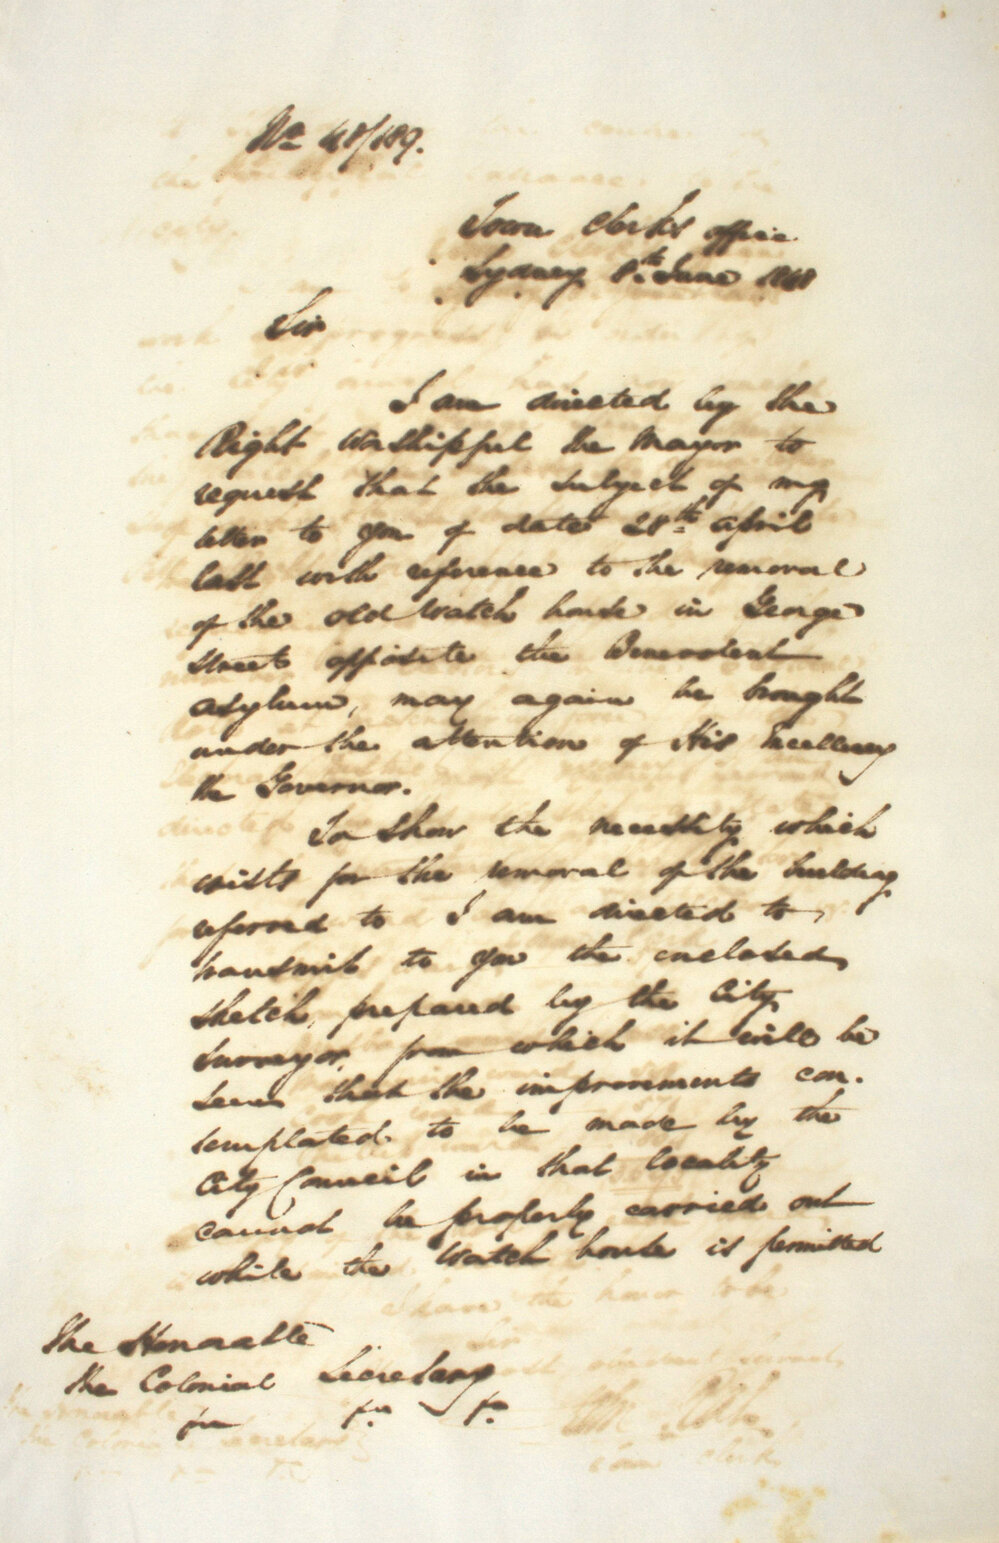 No 68/189.
Town Clerk's office
Sydney 8th June 1868
Sir
I am directed by the
Right Worshipful the Mayor to
request that the subject of my
letter to you of date 28th April
last with reference to the removal
of the old Watch house in George
Street opposite the Benevolent
Asylum, may again be brought
under the attention of His Excellency
the Governor.
To show the necessity which
exists for the removal of the building
referred to I am directed to
transmit to you the enclosed
sketch, prepared by the City
Surveyor, from which it will be
seen that the improvements con-
templated to be made by the
City Council in that locality
cannot be properly carried out
while the Watch house is permitted
The Honorable
the Colonial Secretary